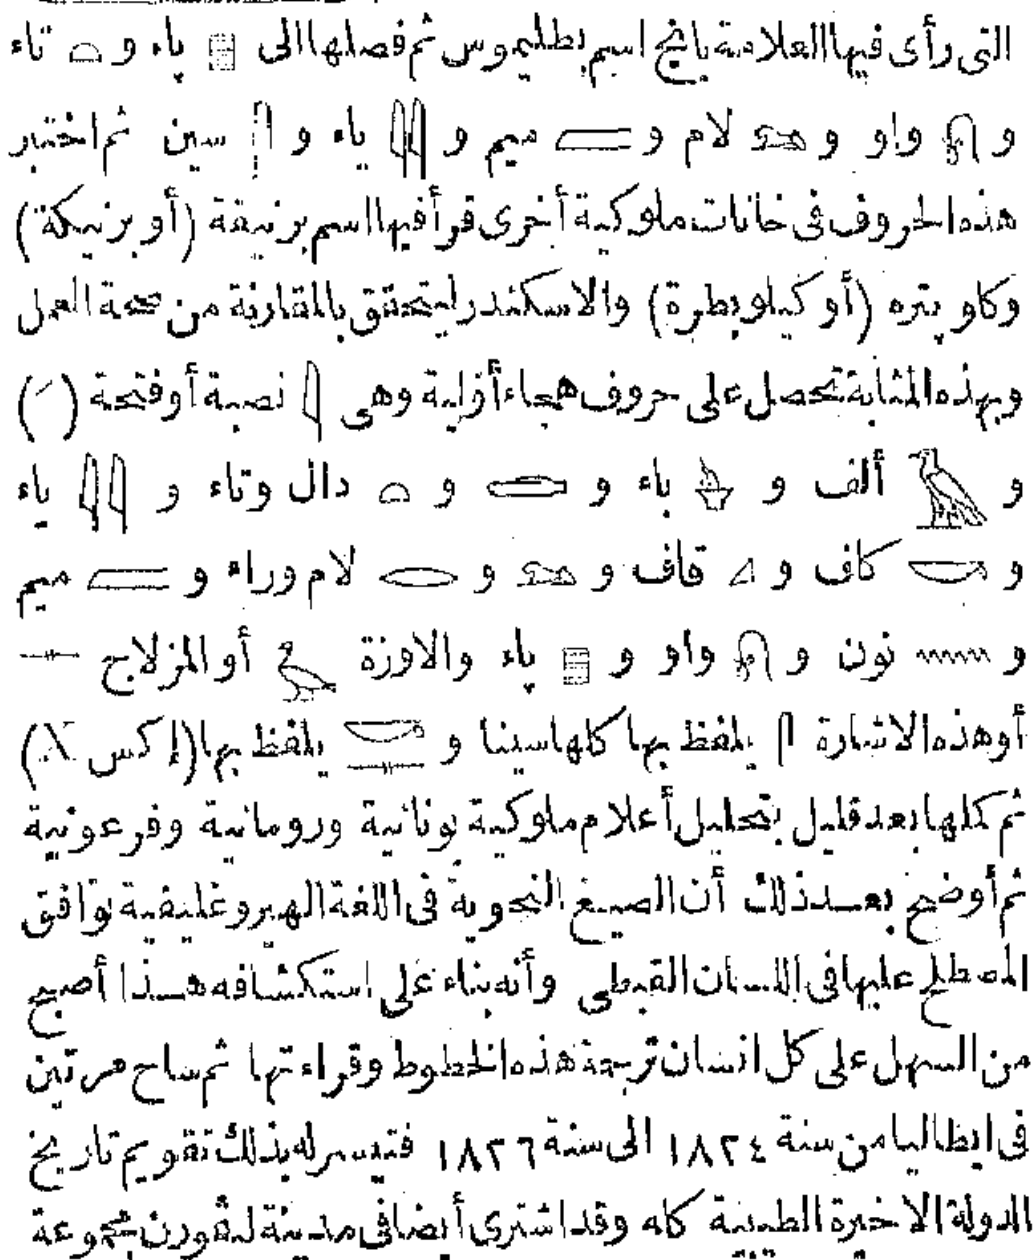 التى رأى فيها العلامة يانج اسم بطليموس ثم فصلها الى 𓊪 پاء و 𓏏 تاء
و 𓍯 واو و 𓃭 لام و 𓐝 ميم و 𓇌 ياء و 𓋴 سين ثم اختبر
هذه الحروف فى خانات ملوكية أخرى قرأ فيها اسم برنيقة (أو برنيكة)
وكاو پتره (أو كيلوبطرة) والاسكندر ليتحقق بالمقارنة من صحة العمل
وبهذه المثابة تحصل على حروف هجاء أولية وهى 𓇋 نصبة أو فتحة (َ)
و 𓄿 ألف و باء و 𓂧 و 𓏏 دال وتاء و 𓇌 ياء
و 𓎡 كاف و 𓈎 قاف و 𓃭 و 𓂋 لام وراء و 𓐝 ميم
و 𓈖 نون و 𓍯 واو و 𓊪 پاء والاوزة 𓅭 أو المزلاج 𓊃
أو هذه الاشارة 𓋴 يلفظ بها كلها سينا و 𓎡𓊃 يلفظ بها (إكس X)
ثم كلها بعد قليل بتحليل أعلام ملوكية يونانية ورومانية وفرعونية
ثم أوضح بعد ذلك أن الصيغ النحوية فى اللغة الهيروغليفية توافق
المصطلح عليها فى اللسان القبطى وأنه بناء على استكشافه هذا أصبح
من السهل على كل انسان ترجمة هذه الخطوط وقراءتها ثم ساح مرتين
فى ايطاليا من سنة ١٨٢٤ الى سنة ١٨٢٦ فتيسر له بذلك تقويم تاريخ
الدولة الاخيرة الطيبية كله وقد اشترى أيضا فى مدينة ليڤورن مجموعة